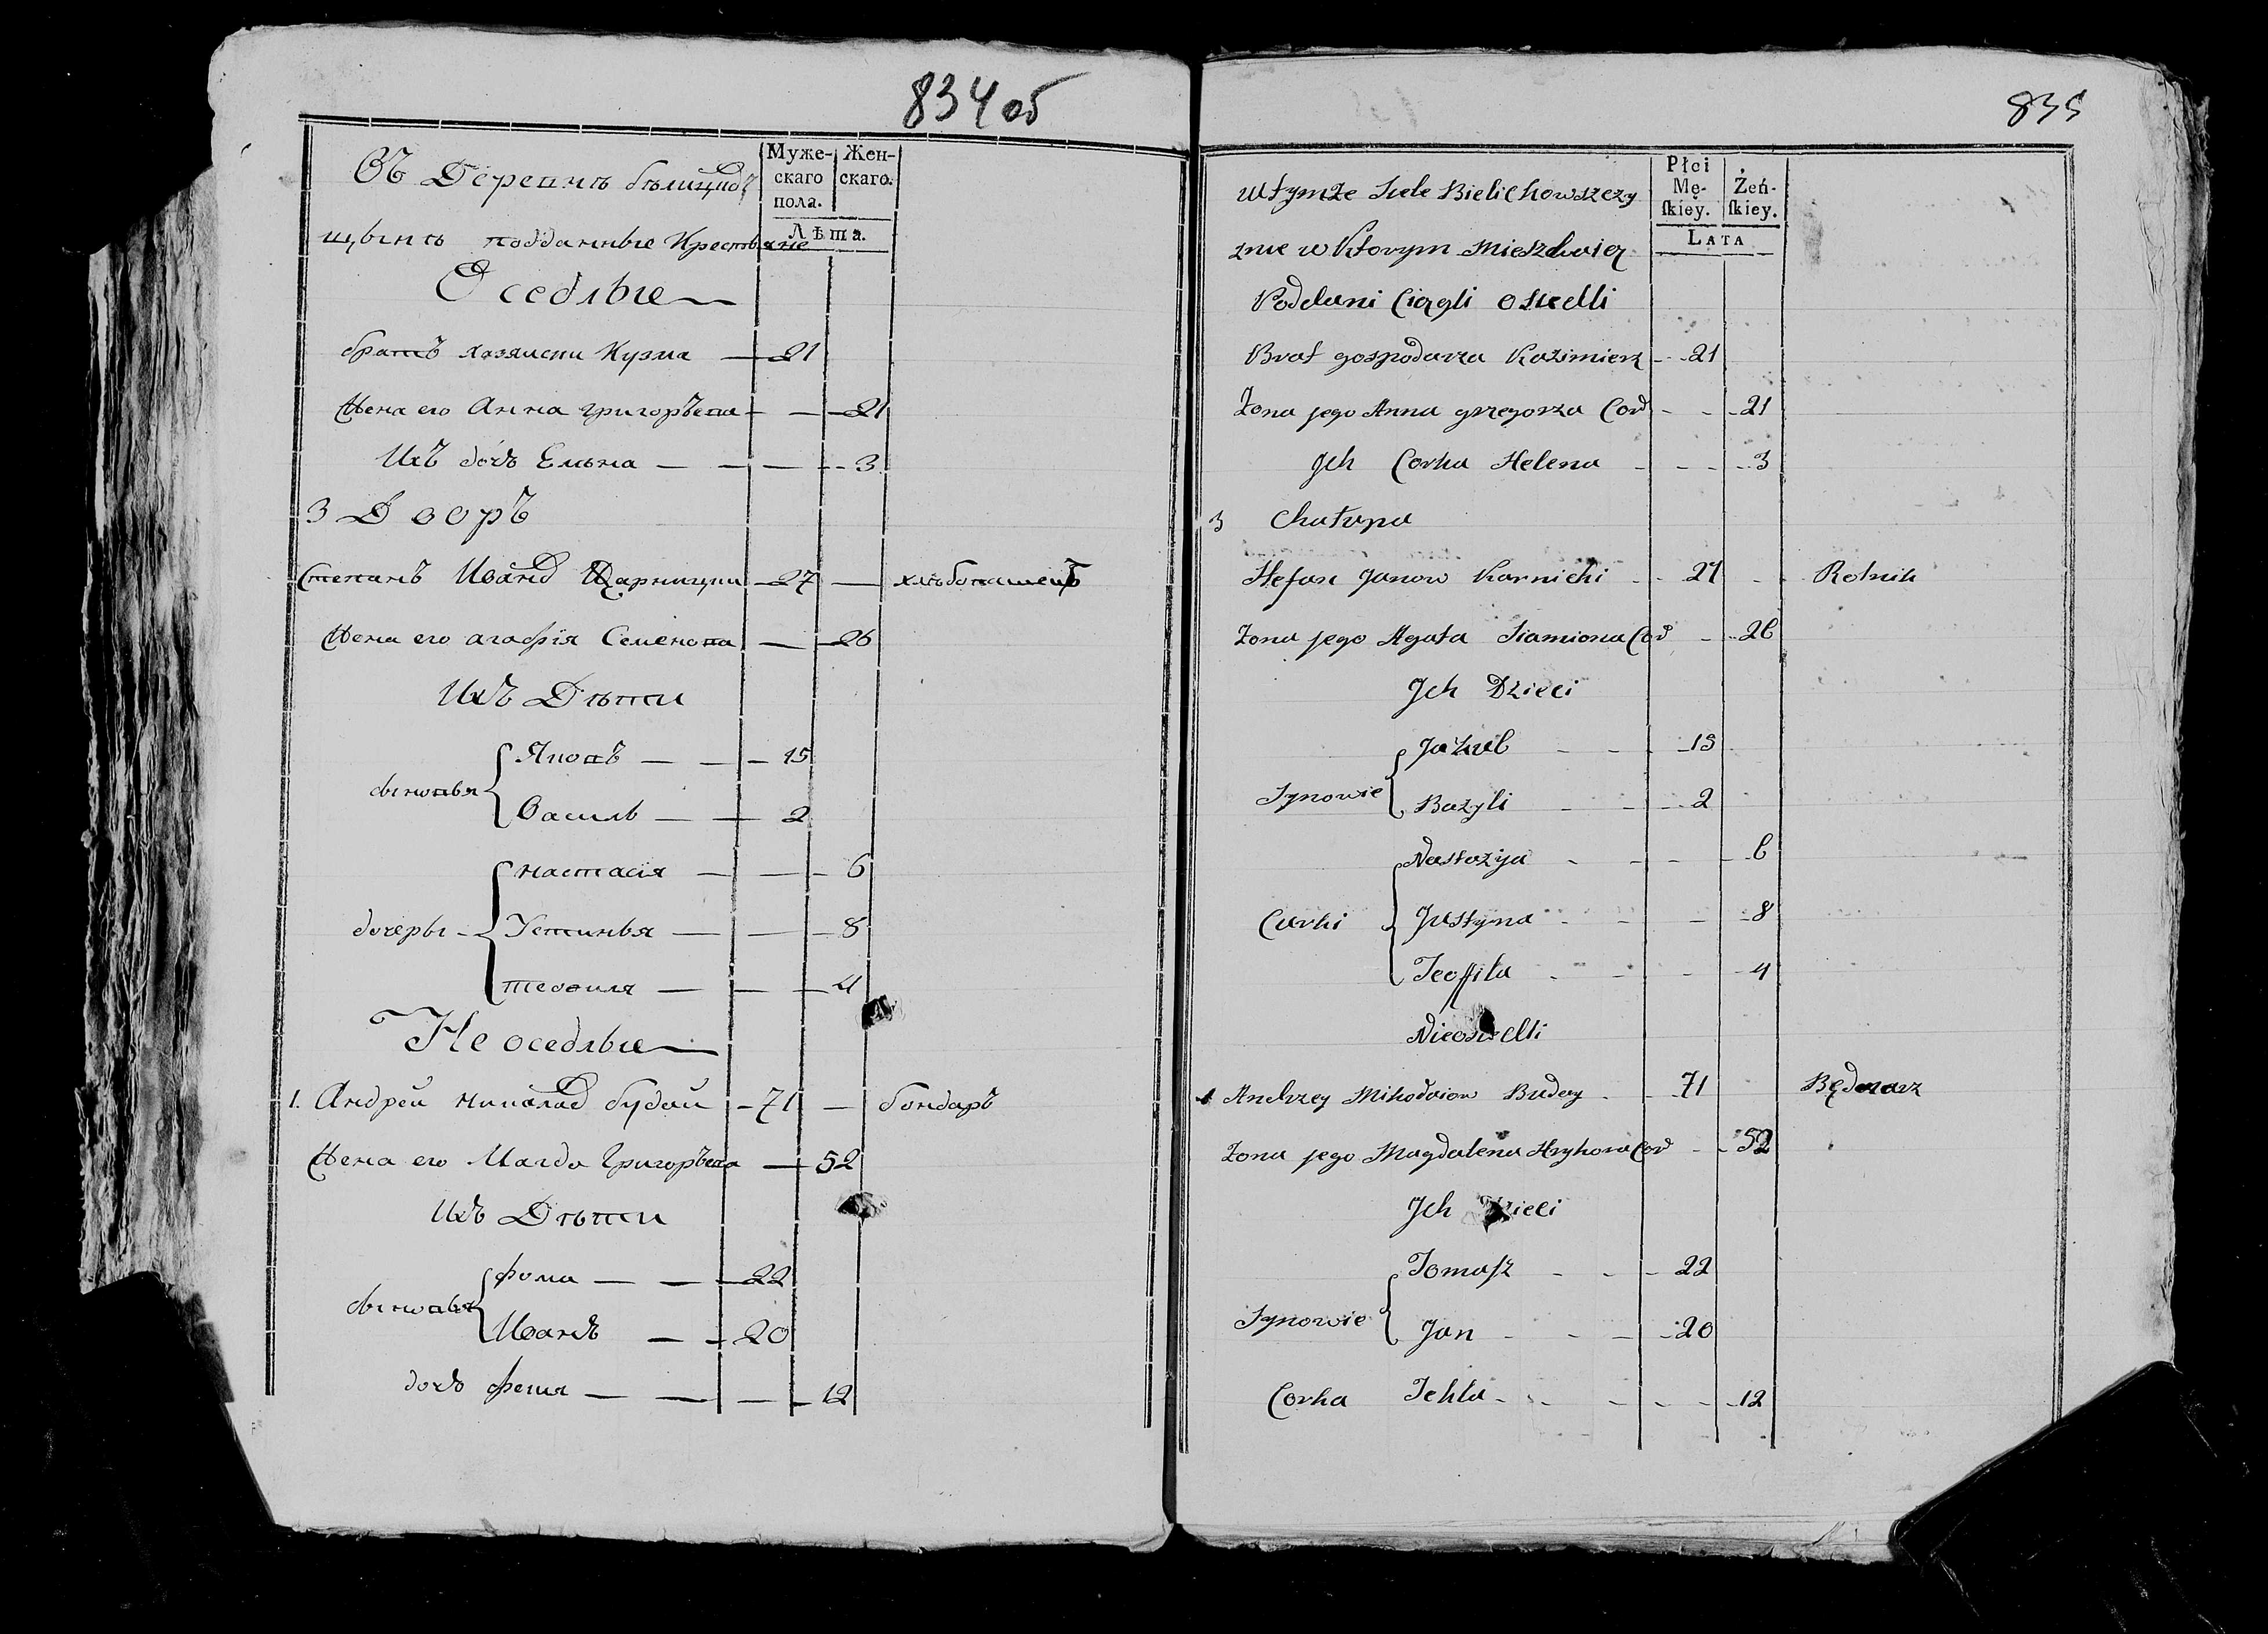 834 об
Въ Деревнѣ бѣлицков
щызнѣ подданные Крестьяне
Муже-
скаго
пола.
Жен-
скаго.
Лѣта.
Оседлые
братъ хазяиски Кузма — 21
Жена его Анна григорьева — — 21
Ихъ дочь Елѣна — — — 3
3 Дворъ
Степанъ Иванов Царницки — 27 — хлѣбопашецъ
Жена его агафія Семенова — 26
Ихъ Дѣти
сыновья
Яковъ — — 15
Василь — — 2
дочеры
настасія — — — 6
Устинья — — — 8
теофиля — — — 4
Не оседлые
1. Андрей николаев будай — 71 — бондаръ
Жена его Магда Григорьева — 52
Ихъ Дѣти
сыновья
фома — — — 22
Иванъ — — 20
дочь фекля — — — — 12
835
Płci
Mę-
skiey.
Żeń-
skiey.
LATA
w tymże Siele Bielichowszczy
znie w Ktorym Mieszkaięz
Poddani Ciągli Osiedli
Brat gospodarza Kazimierz - - 21
Żona jego Anna grzegorza Cor - - - 21
Jch Corka Helena - - - - 3
3 Chałupa
Stefan Janow Karnicki - - 27 - - Rolnik
Żona jego Agata Siamiona Cor - - 26
Jch Dzieci
Synowie
Jakub - - - 15
Bazyli - - - 2
Curki
Nastazija - - - - 6
Justyna - - - - 8
Teoffila - - - - 4
Nieosiedli
1 Andrzey Mikołaiow Buday - - 71 Będnarz
Żona jego Magdalena Hryhora Cor - - 52
Jch Dzieci
Synowie
Tomasz - - - 22
Jan - - - 20
Corka Tekla - - - - - 12